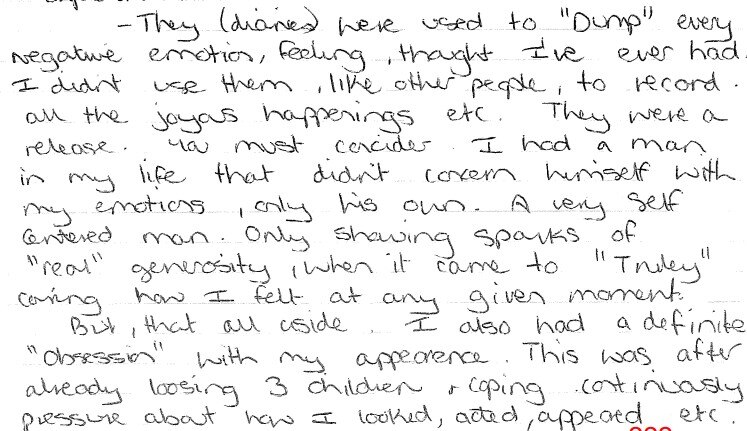 - They (diaries) were used to "Dump" every
negative emotion, feeling, thought I've ever had.
I didnt use them, like other people, to record
all the joyous happenings etc. They were a
release. You must concider I had a man
in my life that didn't concern himself with
my emotions, only his own. A very self
centered man. Only showing sparks of
"real" generosity, when it came to "Truley"
caring how I felt at any given moment.
But, that all aside. I also had a definite
"obsession" with my appearence. This was after
already loosing 3 children + coping continuously
pressure about how I looked, acted, appeared etc.